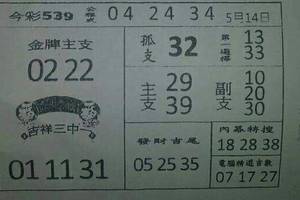 今彩539
04 24 34
5月14日
金牌主支
02 22
吉祥三中一
01 11 31
孤支
32
13
33
主支
29
39
副支
10
20
30
發財吉尾
05 25 35
內幕特搜
18 28 38
電腦精選吉數
07 17 27